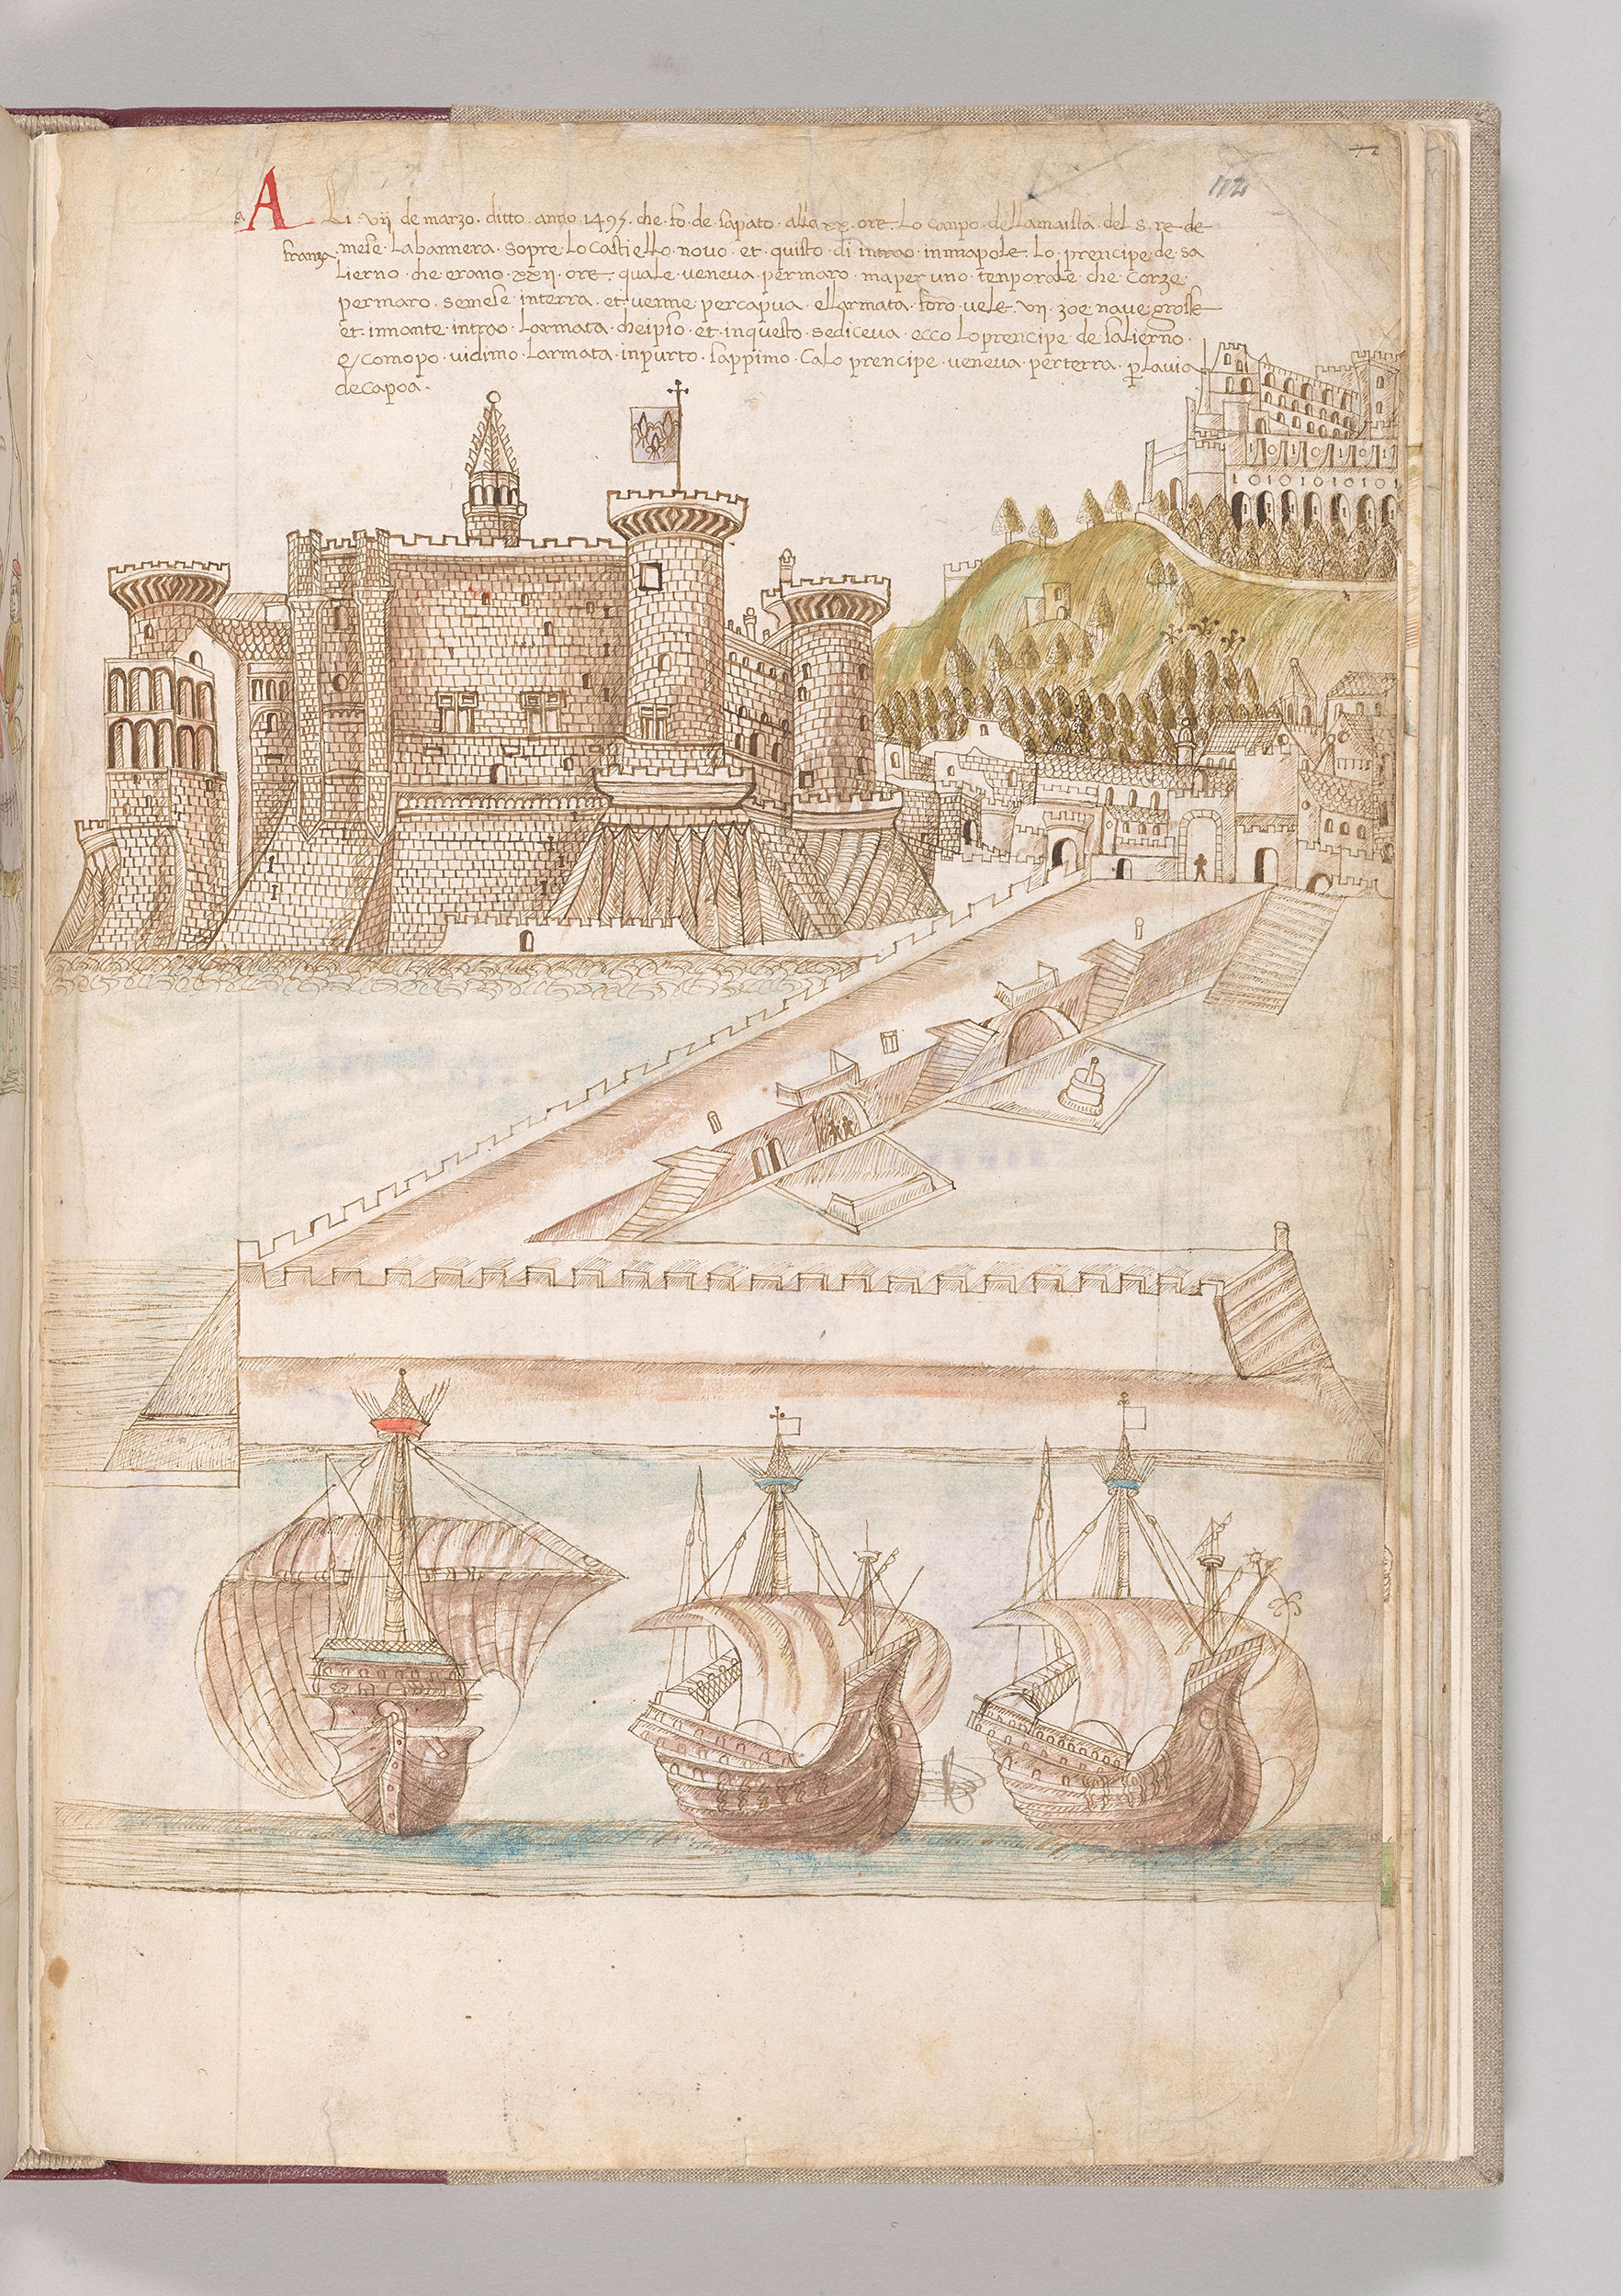 112
A Li · vij de marzo · ditto · anno · 1495 · che · fo · de · sapato · alle xx · ore · Lo canpo · della maista · del · s · re · de
franza mese · La bannera · sopre · Lo Castiello · novo · et · quisto · di intrao · innapole · Lo · prencipe · de · sa
Lierno · che · erano · xxij · ore · quale · veneva · per maro · ma per uno · tenporale · che · Corze ·
per maro · se mese · in terra · et venne · per capua · ell armata · foro · vele · vij · zoe nave grosse
et · innante · introo · Larmata · che ipso · et · in questo · se diceva · ecco · Lo prencipe · de salierno ·
comopo · vidimo · Larmata · in purto · sappimo · Ca Lo prencipe · veneva · per terra · per la via
de capoa ·